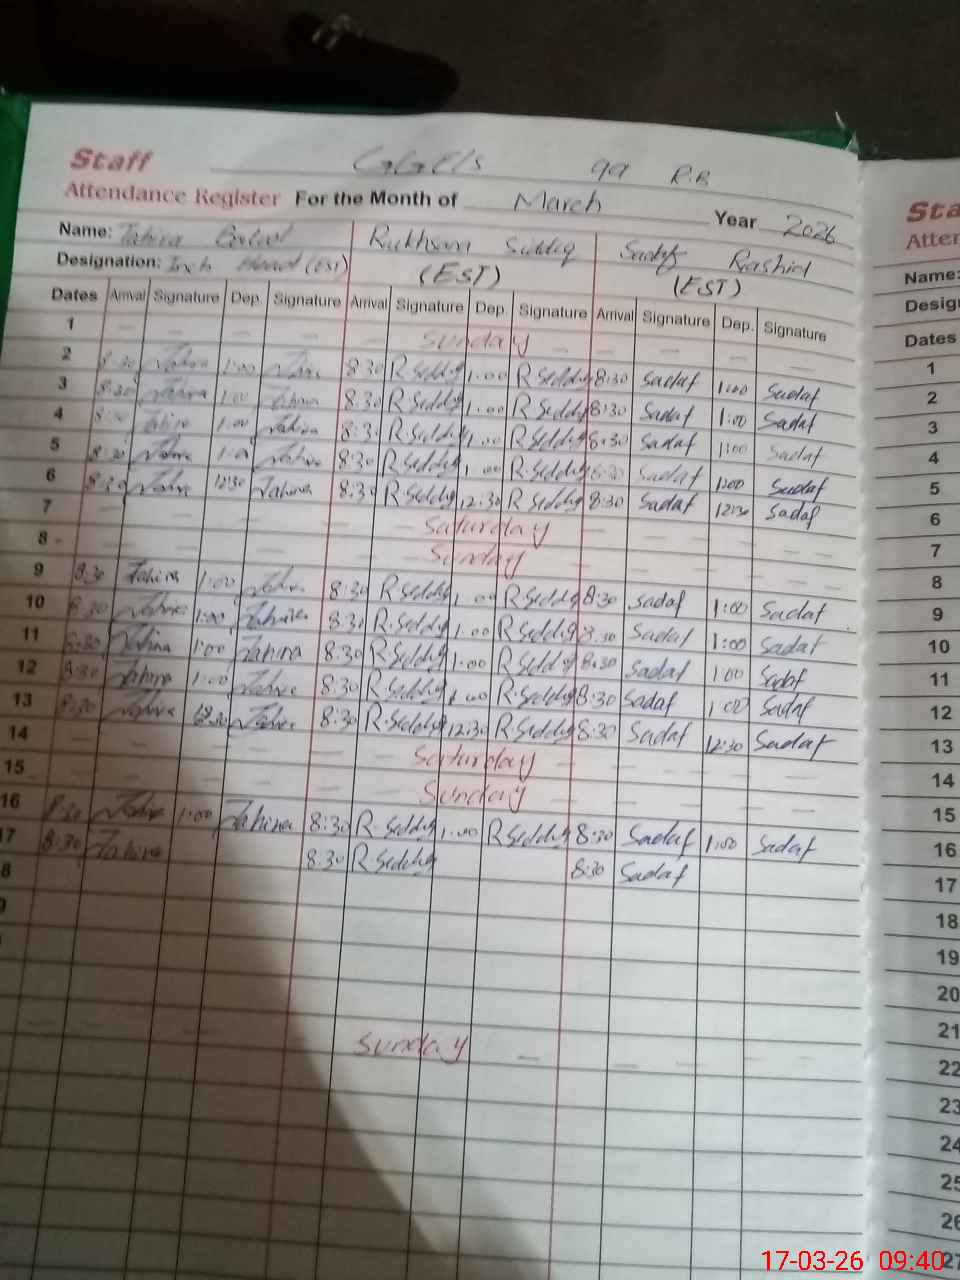 Staff GGES 99 R.B
Attendance Register For the Month of March Year 2026
Name: Tahira Batool Rukhsana Siddiq Sadaf Rashid
Designation: Inch Head (EST) (EST) (EST)
Dates Arrival Signature Dep. Signature Arrival Signature Dep. Signature Arrival Signature Dep. Signature
1 Sunday
2 8:30 Tahira 1:00 Tahira 8:30 R Siddiq 1:00 R Siddiq 8:30 Sadaf 1:00 Sadaf
3 8:30 Tahira 1:00 Tahira 8:30 R Siddiq 1:00 R Siddiq 8:30 Sadaf 1:00 Sadaf
4 8:30 Tahira 1:00 Tahira 8:30 R Siddiq 1:00 R Siddiq 8:30 Sadaf 1:00 Sadaf
5 8:30 Tahira 1:00 Tahira 8:30 R Siddiq 1:00 R.Siddiq 8:30 Sadaf 1:00 Sadaf
6 8:30 Tahira 12:30 Tahira 8:30 R Siddiq 12:30 R Siddiq 8:30 Sadaf 12:30 Sadaf
7 Saturday
8 Sunday
9 8:30 Tahira 1:00 Tahira 8:30 R Siddiq 1:00 R Siddiq 8:30 Sadaf 1:00 Sadaf
10 8:30 Tahira 1:00 Tahira 8:30 R.Siddiq 1:00 R Siddiq 8:30 Sadaf 1:00 Sadaf
11 8:30 Tahira 1:00 Tahira 8:30 R.Siddiq 1:00 R Siddiq 8:30 Sadaf 1:00 Sadaf
12 8:30 Tahira 1:00 Tahira 8:30 R.Siddiq 1:00 R.Siddiq 8:30 Sadaf 1:00 Sadaf
13 8:30 Tahira 12:30 Tahira 8:30 R.Siddiq 12:30 R.Siddiq 8:30 Sadaf 12:30 Sadaf
14 Saturday
15 Sunday
16 8:30 Tahira 1:00 Tahira 8:30 R-Siddiq 1:00 R Siddiq 8:30 Sadaf 1:00 Sadaf
17 8:30 Tahira 8:30 R Siddiq 8:30 Sadaf
8
9
Sunday
Sta
Atter
Name:
Desig
Dates
1
2
3
4
5
6
7
8
9
10
11
12
13
14
15
16
17
18
19
20
21
22
23
24
25
26
27
17-03-26 09:40